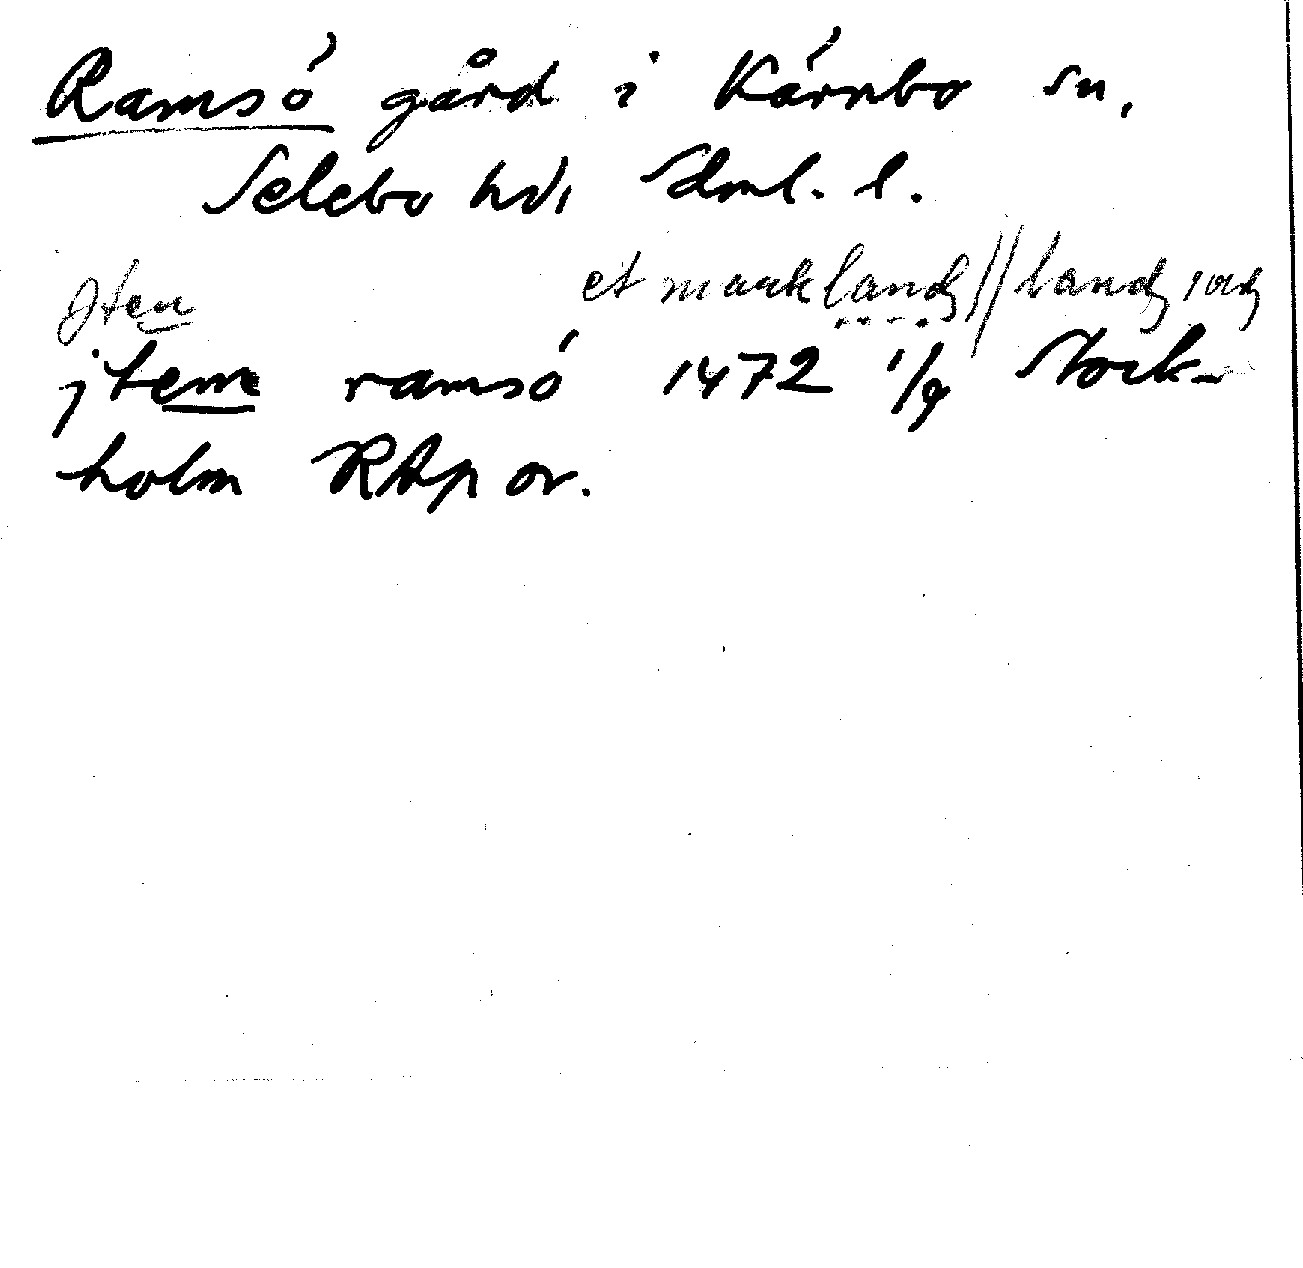 Ramsó gård i Kárnbo sn,
Selebo hd, Sdml. l.
Jten et markland // land iord
jtem ramsó 1472 1/9 Stock-
holm RAp or.